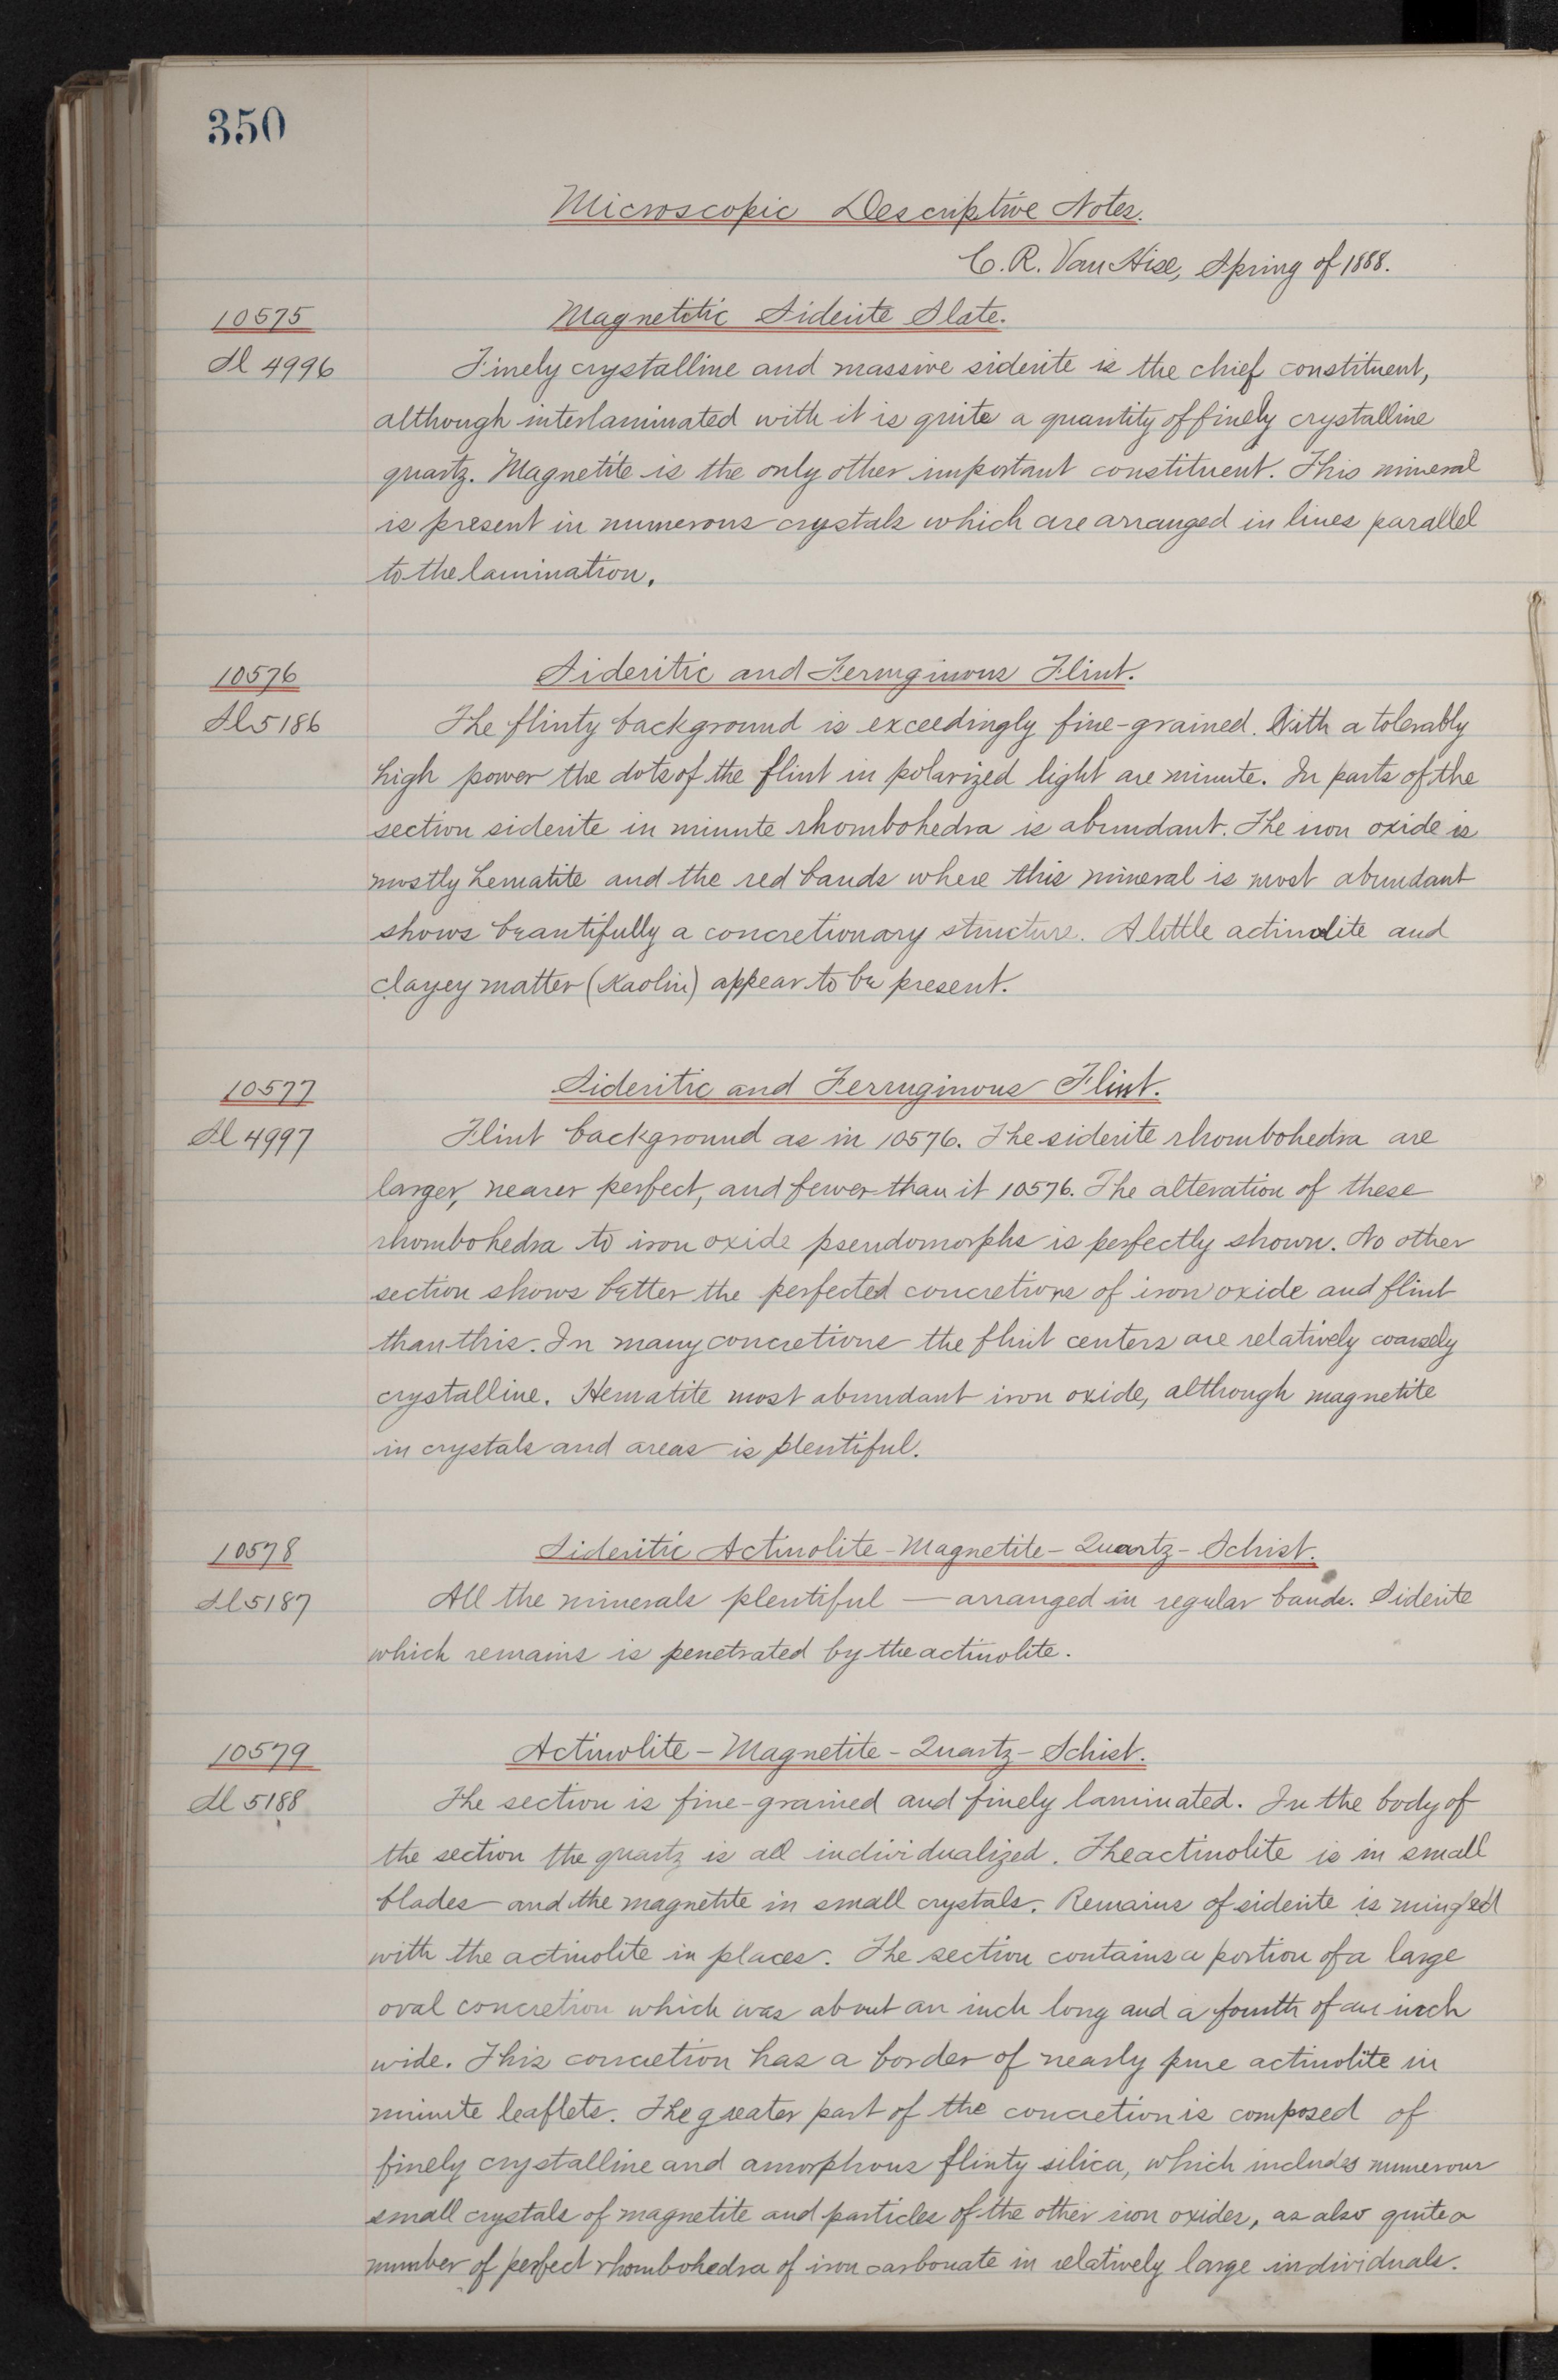 350
Microscopic Descriptive Notes.
C. R. Van Hise, Spring of 1888.
10575
Magnetitic Siderite Slate.
Sl 4996
Finely crystalline and massive siderite is the chief constituent,
although interlaminated with it is quite a quantity of finely crystalline
quartz. Magnetite is the only other important constituent. This mineral
is present in numerous crystals which are arranged in lines parallel
to the lamination.
10576
Sideritic and Ferruginous Flint.
Sl 5186
The flinty background is exceedingly fine-grained. With a tolerably
high power the dots of the flint in polarized light are minute. In parts of the
section siderite in minute rhombohedra is abundant. The iron oxide is
mostly hematite and the red bands where this mineral is most abundant
shows beautifully a concretionary structure. A little actinolite and
clayey matter (Kaolin) appear to be present.
10577
Sideritic and Ferruginous Flint.
Sl 4997
Flint background as in 10576. The siderite rhombohedra are
larger, nearer perfect, and fewer than it 10576. The alteration of these
rhombohedra to iron oxide pseudomorphs is perfectly shown. No other
section shows better the perfected concretions of iron oxide and flint
than this. In many concretions the flint centers are relatively coarsely
crystalline. Hematite most abundant iron oxide, although magnetite
in crystals and areas is plentiful.
10578
Sideritic Actinolite-Magnetite-Quartz-Schist.
Sl 5187
All the minerals plentiful — arranged in regular bands. Siderite
which remains is penetrated by the actinolite.
10579
Actinolite-Magnetite-Quartz-Schist.
Sl 5188
The section is fine-grained and finely laminated. In the body of
the section the quartz is all individualized. The actinolite is in small
blades and the magnetite in small crystals. Remains of siderite is mingled
with the actinolite in places. The section contains a portion of a large
oval concretion which was about an inch long and a fourth of an inch
wide. This concretion has a border of nearly pure actinolite in
minute leaflets. The greater part of the concretion is composed of
finely crystalline and amorphous flinty silica, which includes numerous
small crystals of magnetite and particles of the other iron oxides, as also quite a
number of perfect rhombohedra of iron carbonate in relatively large individuals.